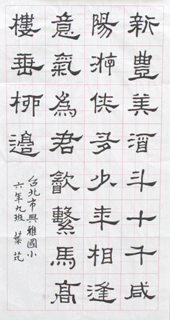 新豐美酒斗十千咸
陽游俠多少年相逢
意氣為君飲繫馬高
樓垂柳邊
台北市興雅國小
六年九班 葉芷